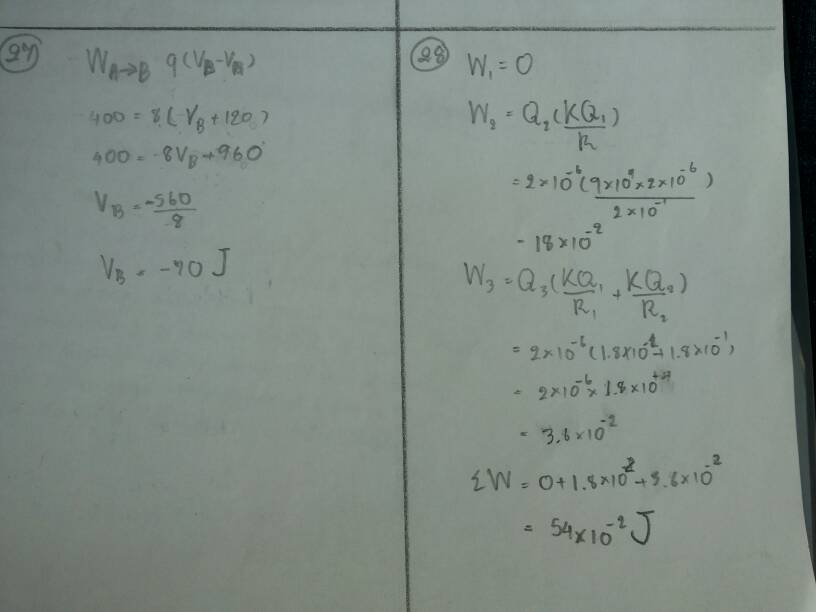 27
W_A→B q(V_B-V_A)
400 = 8(V_B+120)
400 = 8V_B+960
V_B = -560/8
V_B = -70 J
28
W₁ = 0
W₂ = Q₂(KQ₁/R)
= 2×10⁻⁶(9×10⁹×2×10⁻⁶/2×10⁻¹)
- 18×10⁻²
W₃ = Q₃(KQ₁/R₁ + KQ₂/R₂)
= 2×10⁻⁶(1.8×10⁻¹+1.8×10⁻¹)
= 2×10⁻⁶×1.8×10
= 3.6×10⁻²
ΣW = 0+1.8×10²+3.6×10⁻²
= 54×10⁻² J